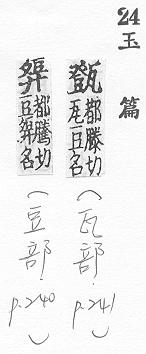 24 玉篇
都滕切
瓦豆名
(瓦部. p.241)
都騰切
豆名
(豆部. p.240)